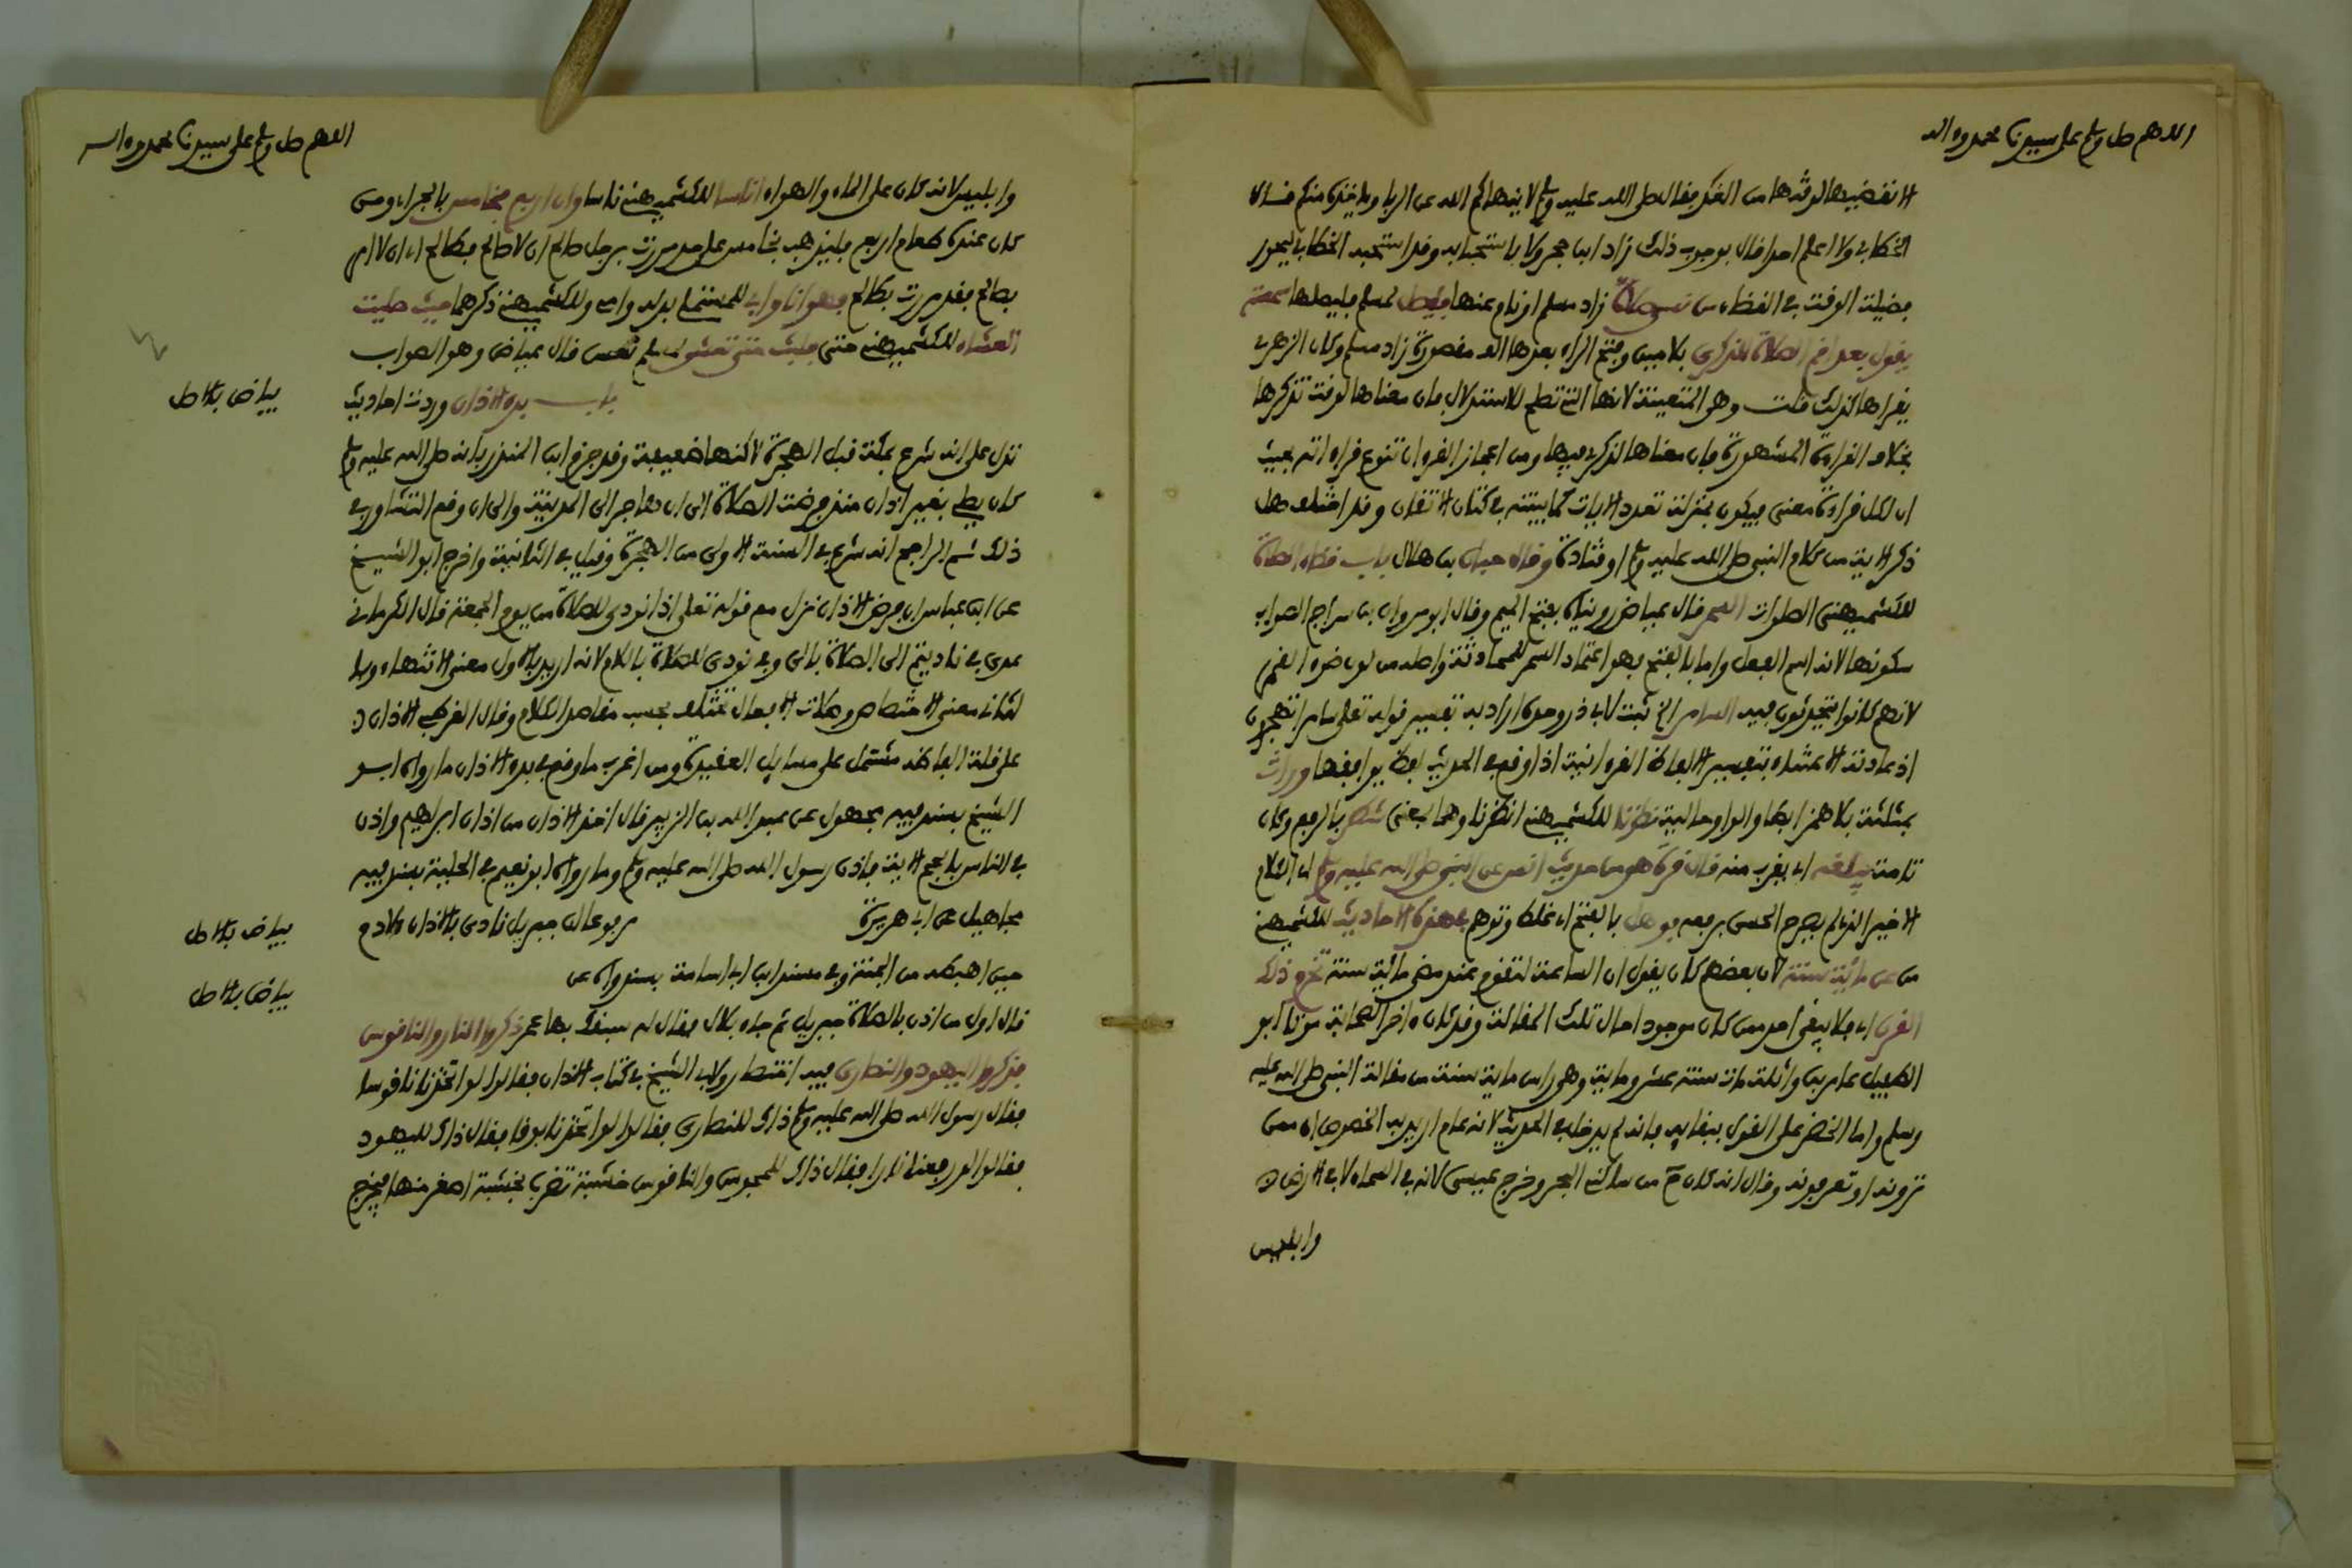 اللهم صل وسلم على سيدنا محمد وءاله
الا نقضيها لوقتها من الغد فقال صلى الله عليه وسلم لا ينهاكم الله عن الربا وياخذه منكم قال
الخطابي ولا اعلم احدا قال بوجوب ذلك زاد ابن حجر ولا باستحبابه وقد استحبه الخطابي ليحوز
فضيلة الوقت في القضاء من نسي صلاة زاد مسلم او نام عنها فليصل لمسلم فليصلها
يقول بعد اقم الصلاة للذكرى بلامين وفتح الراء بعدها الف مقصورة زاد مسلم وكان الزهري
يقراها كذلك قلت وهو المتعينة لانها التي تصلح للاستدلال فان معناها لوقت تذكرها
بخلاف القراءة المشهورة فان معناها لذكري فيها ومن اعجاز القرءان تنوع قراءاته بحيث
ان لكل قراءة معنى فيكون بمنزلة تعدد الايات كما بينته في كتاب الاتقان وقد اختلف هل
ذكر الاية من كلام النبي صلى الله عليه وسلم او قتادة وقال حبان بن هلال باب قضاء الصلاة
للكشميهني الصلوات السمر قال عياض رويناه بفتح الميم وقال ابو مروان بن سراج الصواب
سكونها لانه اسم الفعل واما بالفتح فهو اعتماد السمر للمحادثة واصله من لون ضوء القمر
لانهم كانوا يتحدثون فيه السامر الخ ثبت لابي ذر وحده اراد به تفسير قوله تعلى سامرا تهجرون
اذ عادته الاعتناء بتفسير الالفاظ القرءانية اذا وقع في الحديث لفظ يوافقها وراث
بمثلثة بلا همز ابطا والواو حالية نظرنا للكشميهني انتظرنا وهما بمعنى شطر بالرفع وكان
تامة يبلغه اي يقرب منه قال قرة هو من حديث انس عن النبي صلى الله عليه وسلم اي الكلام
الاخير الذي لم يصرح الحسن برفعه فوهل بالفتح اي غلط وتوهم في هذه الاحاديث للكشميهني
من عن مائية سنة لان بعضهم كان يقول ان الساعة تقوم عند مضي مائية سنة تخرم ذلك
القرن اي فلا يبقى احد ممن كان موجودا حال تلك المقالة وقد كان ءاخر الصحابة موتا ابو
الطفيل عامر بن واثلة مات سنة عشر ومايية وهي راس مايية سنة من مقالة النبي صلى الله عليه
وسلم واما الخضر على القول ببقايه فانه لم يدخل في الحديث لانه عام اريد به الخصوص اي ممن
ترونه او تعرفونه وقال انه كان ح من ساكني البحر وخرج عيسى لانه في السماء لا في الارض
وابليس
اللهم صل وسلم على سيدنا محمد وءاله
وابليس لانه كان على الماء والهواء اناسا للكشميهني ناسا وان اربع فخامس بالجر اي ومن
كان عنده طعام اربع فليذهب بخامس على حد مررت برجل صالح ان لا صالح فطالح اي ان لا امر
بصالح فقد مررت بطالح فهو انا وابي للمستملي بدله وامي وللكشميهني ذكرهما حيث صليت
العشاء للكشميهني حتى فلبث حتى تعشى لمسلم نعس قال عياض وهو الصواب
باب بدء الاذان وردت احاديث
بياض بالاصل
تدل على انه شرع بمكة قبل الهجرة لاكنها ضعيفة وقد جزم ابن المنذر بانه صلى الله عليه وسلم
كان يصلي بغير اذان منذ فرضت الصلاة الى ان هاجر الى المدينة والى ان وقع التشاور في
ذلك ثم الراجح انه شرع في السنة الاولى من الهجرة وقيل في الثانية واخرج ابو الشيخ
عن ابن عباس ان فرض الاذان نزل مع قوله تعلى اذا نودي للصلاة من يوم الجمعة قال الكرماني
عدي في ناديتم الى الصلاة بالى وفي نودي للصلاة باللام لانه اريد بالاول معنى الانتهاء وبا
لثاني معنى الاختصاص وصلات الافعال تختلف بحسب مقاصد الكلام وقال القرطبي الاذان
على قلة الفاظه مشتمل على مسايل العقيدة ومن اغرب ما وقع في بدء الاذان ما رواه ابو
الشيخ بسند فيه مجهول عن عبد الله بن الزبير قال اخذ الاذان من اذان ابراهيم واذن
في الناس بالحج الاية فاذن رسول الله صلى الله عليه وسلم وما رواه ابو نعيم في الحلية بسند فيه
مجاهيل عن ابي هريرة يرفوعا ان جبريل نادى بالاذان لادم
بياض بالاصل
حين اهبط من الجنة وفي مسند ابن ابي اسامة بسند واه عن
بياض بالاصل
قال اول من اذن بالصلاة جبريل ثم جاء بلال فقال له سبقك بها عمر ذكروا النار والناقوس
فذكروا اليهود والنصارى فيه اختصار ولابي الشيخ في كتاب الاذان فقالوا لو اتخذنا ناقوسا
فقال رسول الله صلى الله عليه وسلم ذاك للنصارى فقالوا لو اتخذنا بوقا فقال ذاك لليهود
فقالوا لو رفعنا نارا فقال ذاك للمجوس والناقوس خشبة تضرب بخشبة اصغر منها فيخرج